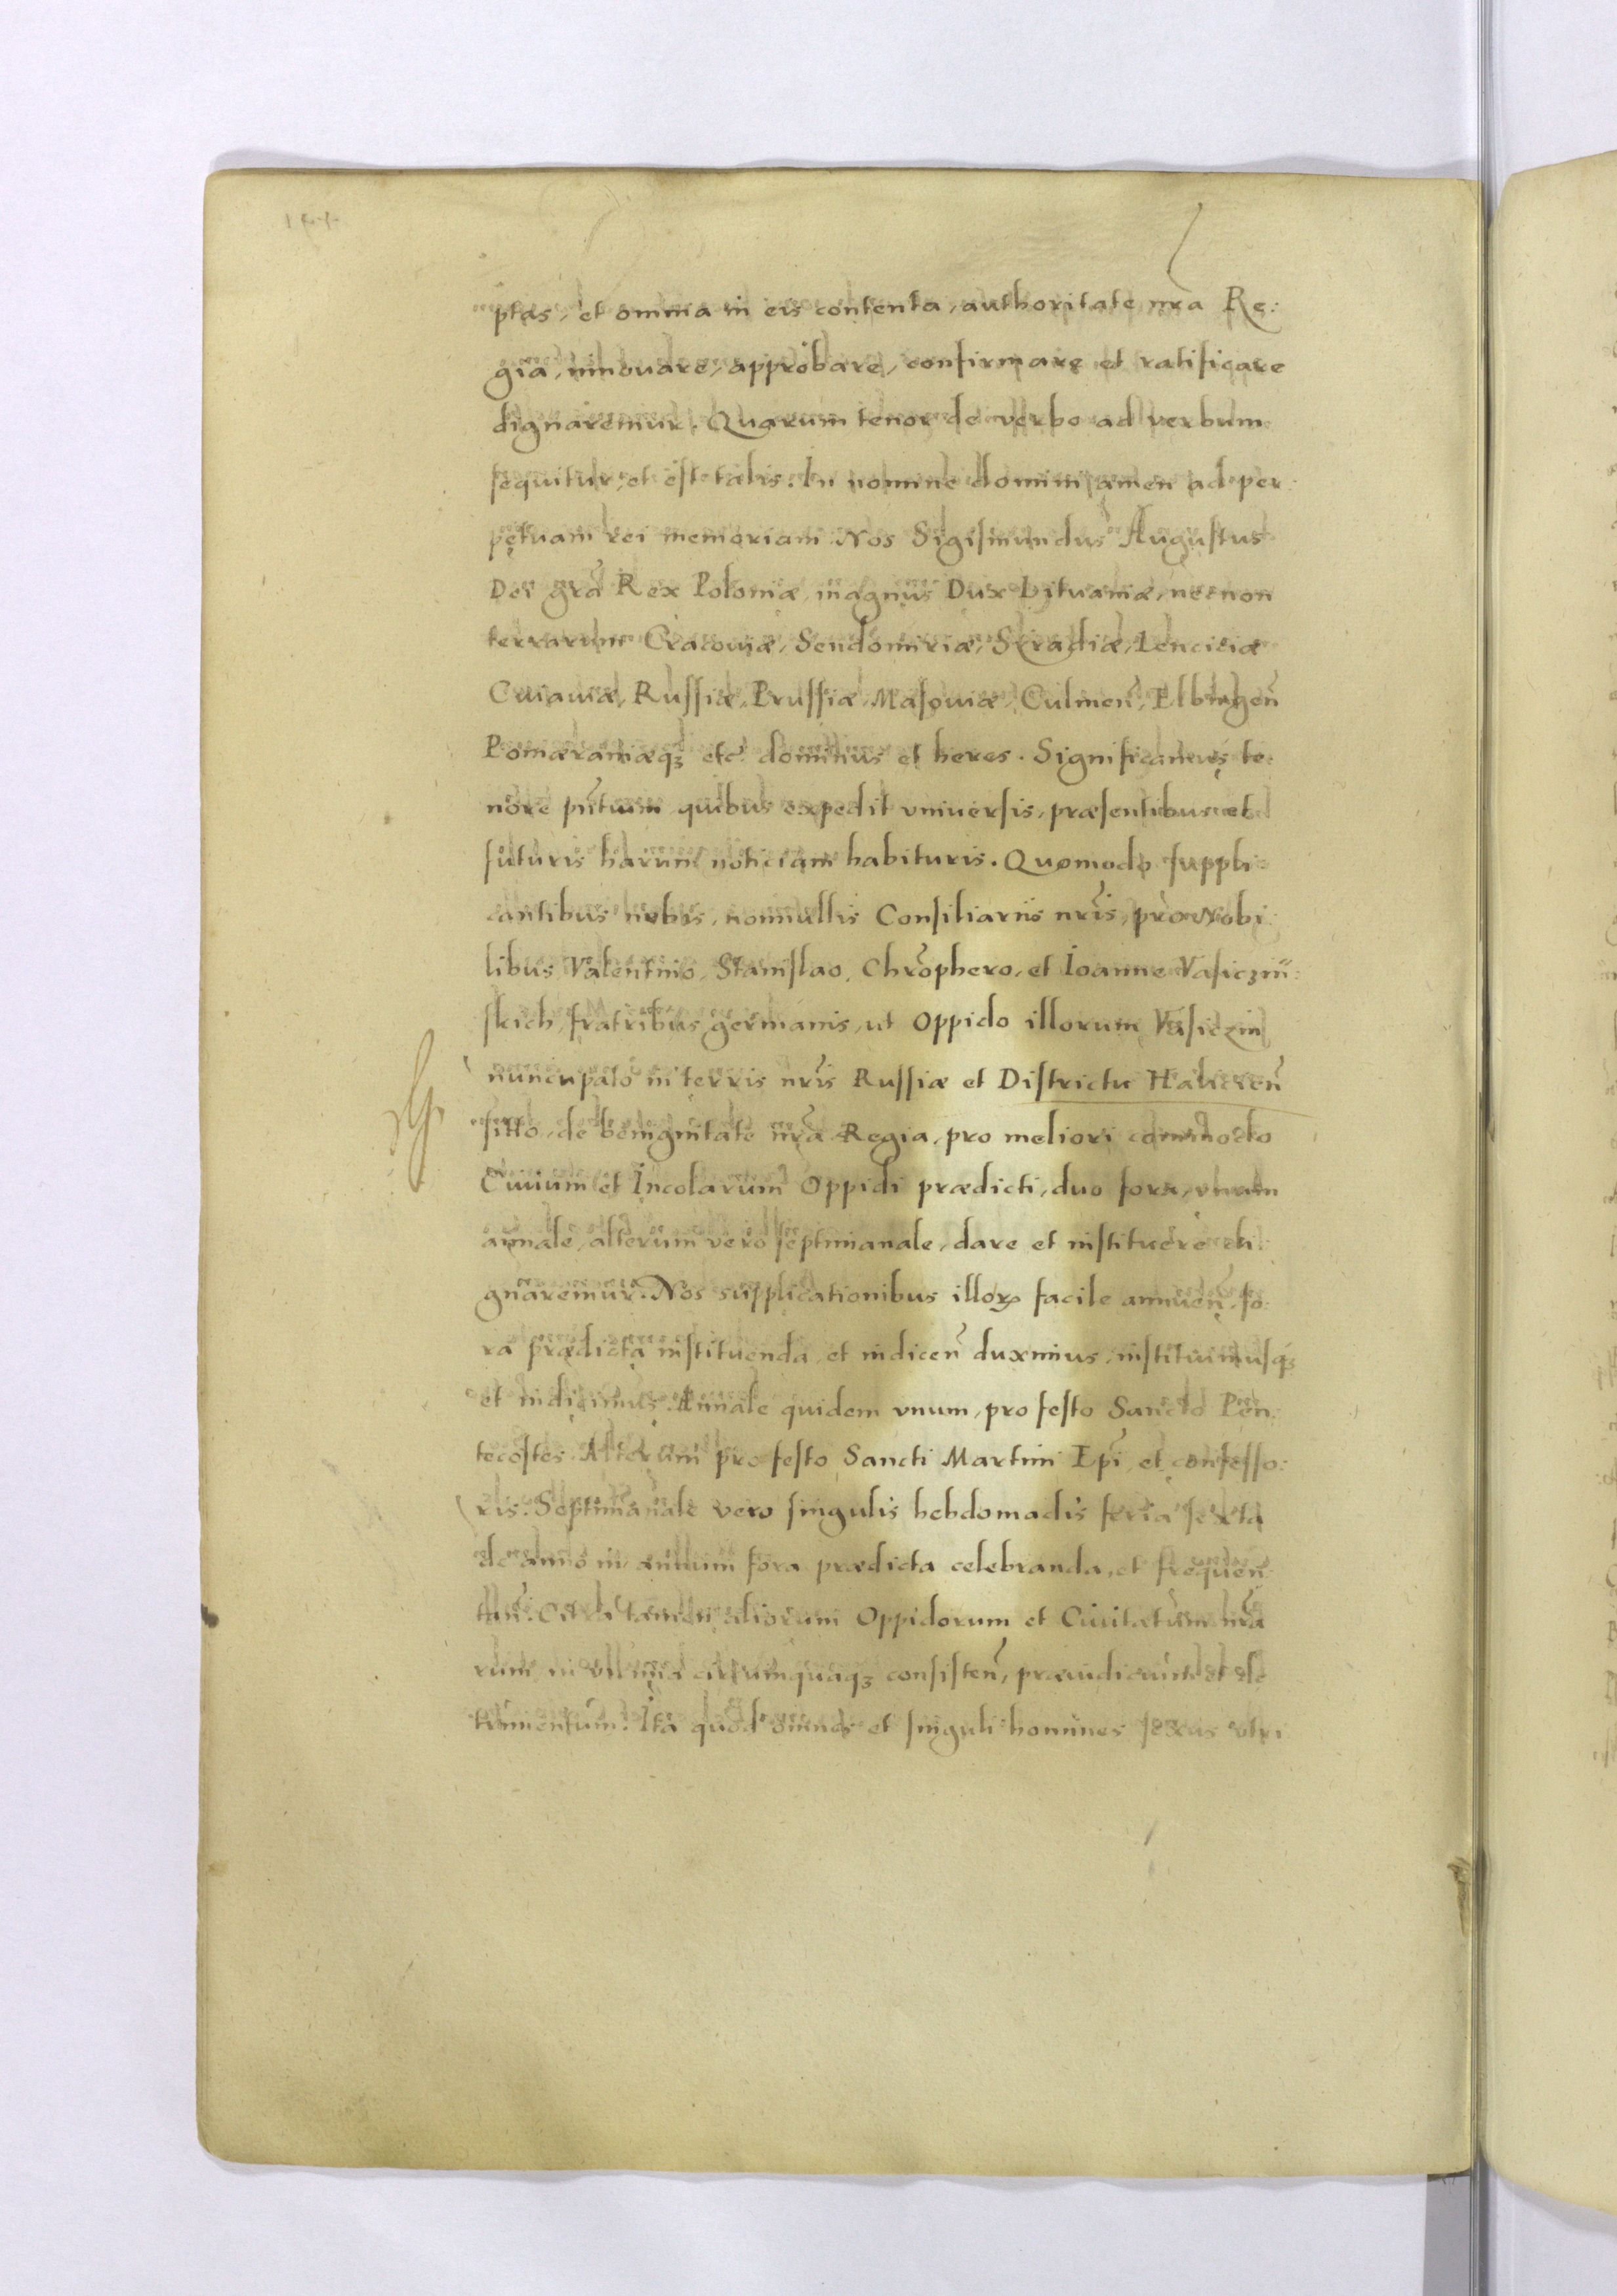 ptas, et omnia in eis contenta, authoritate nr̃a Re:
gia, innouare, approbare, confirmare et ratificare
dignaremur. Quarum tenor de verbo ad verbum
sequitur, et est talis. In nomine domini amen ad per
petuam rei memoriam Nos Sigismundus Augustus
Dei gr̃a Rex Poloniæ, magnus Dux Lituaniæ, necnon
terrarum Cracouiæ, Sendomiriæ, Siradiæ, Lenciciæ
Cuiauiæ, Russiæ, Prussiæ, Masouiæ, Culmeñ, Elbingeñ
Pomæraniæqꝫ etc̃ dominus et heres. Significamus te:
nore pñtium quibus expedit vniuersis, præsentibus et
futuris harum noticiam habituris. Quomodo suppli:
cantibus nobis, nonnullis Consiliariis nr̃is, pro Nobi
libus Valentino, Stanislao, Chrõphero, et Ioanne Vasiczin:
skich, fratribus germanis, ut Oppido illorum Vasiczin
nuncupato in terris nr̃is Russiæ et Districtu Halicieñ
sitto, de benignitate nr̃a Regia, pro meliori commodo
Ciuium et Incolarum Oppidi prædicti, duo fora, vnum
annale, alterum vero septimanale, dare et instituere di:
gnaremur. Nos supplicationibus illorꝝ facile annueñ, fo:
ra prædicta instituenda et indiceñ duximus, instituimusqꝫ
et indicimus. Annale quidem vnum, pro festo Sancto Pen:
tecostes Alterum pro festo Sancti Martini Ep̃i et confesso:
ris. Septimanale vero singulis hebdomadis feria sexta
de anno in annum fora prædicta celebranda, et frequen
tañ. Citra tamen aliorum Oppidorum et Ciuitatum nr̃a
rum in vicinia circumquaqꝫ consisteñ, præiudicium et de
trimentum. Ita quod omnes et singuli homines sexus vtri